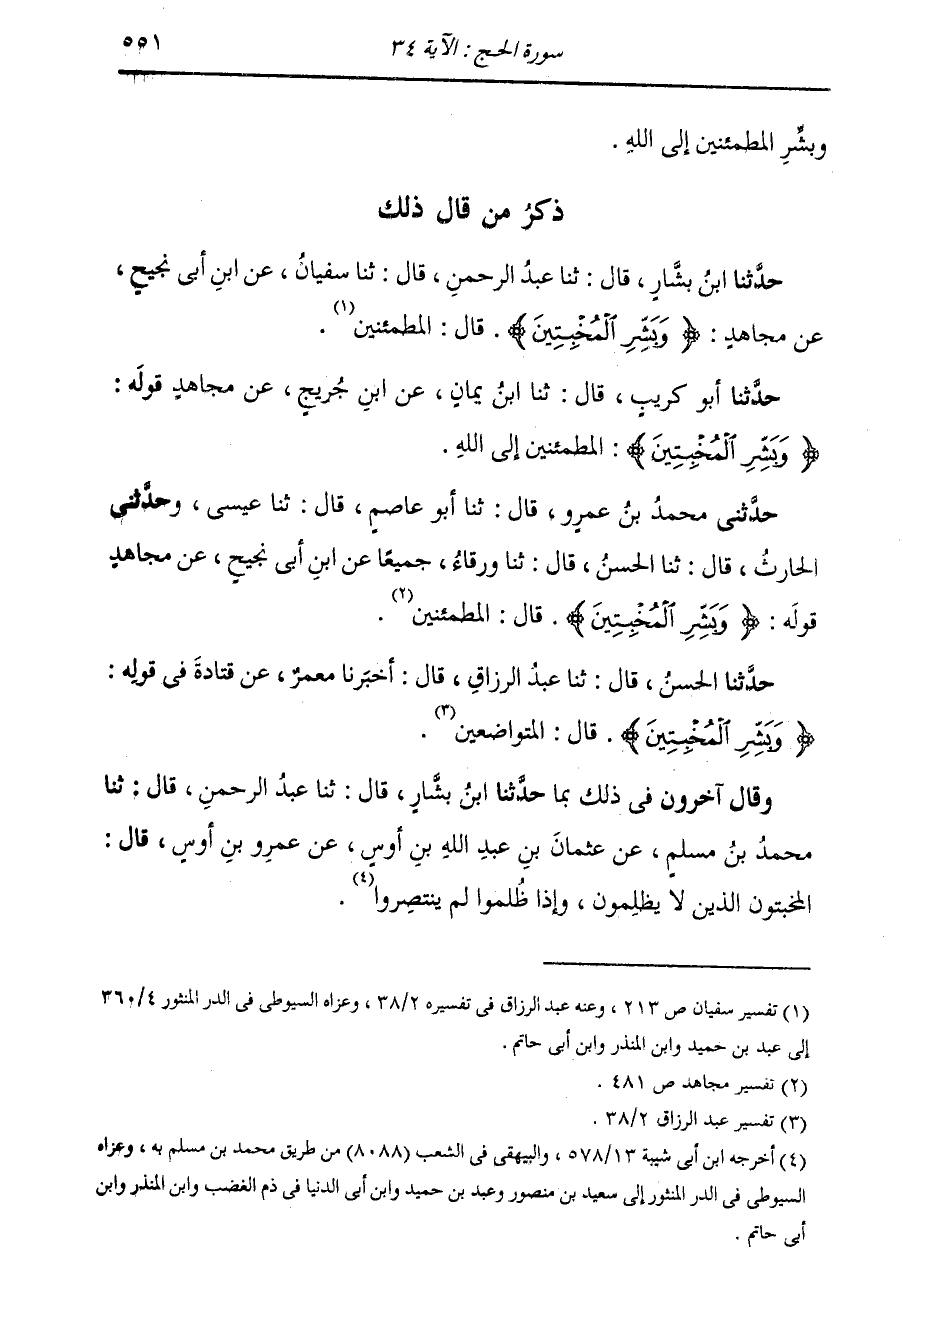 سورة الحج : الآية ٣٤ ٥٥١
وبشِّرِ المطمئنين إلى اللهِ .
ذكرُ من قال ذلك
حدَّثنا ابنُ بشَّارٍ ، قال : ثنا عبدُ الرحمنِ ، قال : ثنا سفيانُ ، عن ابنِ أبى نجيحٍ ،
عن مجاهدٍ : ﴿ وَبَشِّرِ ٱلْمُخْبِتِينَ ﴾ . قال : المطمئنين(١) .
حدَّثنا أبو كريبٍ ، قال : ثنا ابنُ يمانٍ ، عن ابنِ جُريجٍ ، عن مجاهدٍ قولَه :
﴿ وَبَشِّرِ ٱلْمُخْبِتِينَ ﴾ : المطمئنين إلى اللهِ .
حدَّثنى محمدُ بنُ عمرٍو ، قال : ثنا أبو عاصمٍ ، قال : ثنا عيسى ، وحدَّثنى
الحارثُ ، قال : ثنا الحسنُ ، قال : ثنا ورقاءُ ، جميعًا عن ابنِ أبى نجيحٍ ، عن مجاهدٍ
قولَه : ﴿ وَبَشِّرِ ٱلْمُخْبِتِينَ ﴾ . قال : المطمئنين(٢) .
حدَّثنا الحسنُ ، قال : ثنا عبدُ الرزاقِ ، قال : أخبَرنا معمرٌ ، عن قتادةَ فى قولِه :
﴿ وَبَشِّرِ ٱلْمُخْبِتِينَ ﴾ . قال : المتواضعين(٣) .
وقال آخرون فى ذلك بما حدَّثنا ابنُ بشَّارٍ ، قال : ثنا عبدُ الرحمنِ ، قال : ثنا
محمدُ بنُ مسلمٍ ، عن عثمانَ بنِ عبدِ اللهِ بنِ أوسٍ ، عن عمرِو بنِ أوسٍ ، قال :
المخبتون الذين لا يظلِمون ، وإذا ظُلموا لم ينتصِروا(٤) .
(١) تفسير سفيان ص ٢١٣ ، وعنه عبد الرزاق فى تفسيره ٣٨/٢ ، وعزاه السيوطى فى الدر المنثور ٣٦٠/٤
إلى عبد بن حميد وابن المنذر وابن أبى حاتم .
(٢) تفسير مجاهد ص ٤٨١ .
(٣) تفسير عبد الرزاق ٣٨/٢ .
(٤) أخرجه ابن أبى شيبة ٥٧٨/١٣ ، والبيهقى فى الشعب (٨٠٨٨) من طريق محمد بن مسلم به ، وعزاه
السيوطى فى الدر المنثور إلى سعيد بن منصور وعبد بن حميد وابن أبى الدنيا فى ذم الغضب وابن المنذر وابن
أبى حاتم .